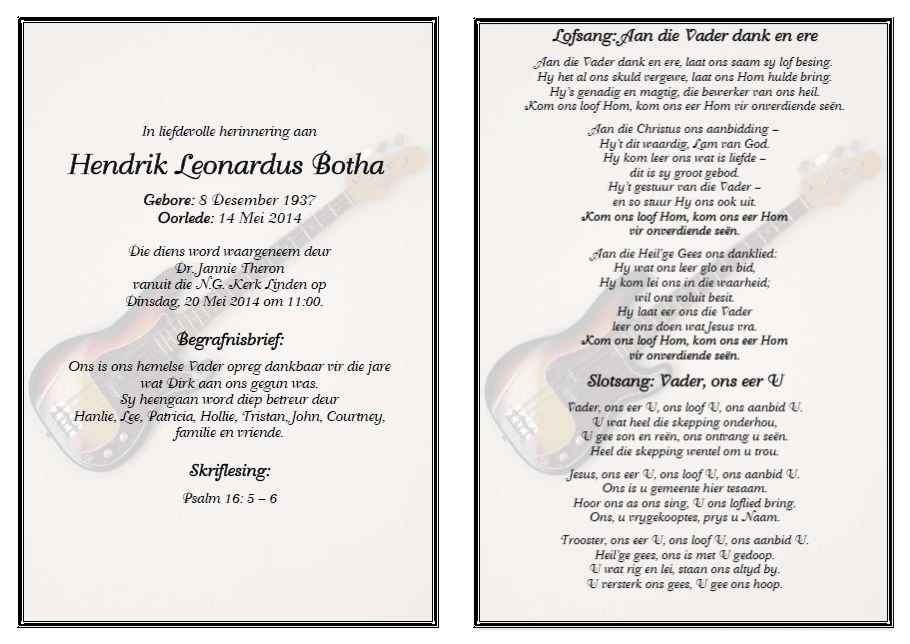 In liefdevolle herinnering aan
Hendrik Leonardus Botha
Gebore: 8 Desember 1937
Oorlede: 14 Mei 2014
Die diens word waargeneem deur
Dr. Jannie Theron
vanuit die N.G. Kerk Linden op
Dinsdag, 20 Mei 2014 om 11:00.
Begrafnisbrief:
Ons is ons hemelse Vader opreg dankbaar vir die jare
wat Dirk aan ons gegun was.
Sy heengaan word diep betreur deur
Hanlie, Lee, Patricia, Hollie, Tristan, John, Courtney,
familie en vriende.
Skriflesing:
Psalm 16: 5 – 6
Lofsang: Aan die Vader dank en ere
Aan die Vader dank en ere, laat ons saam sy lof besing.
Hy het al ons skuld vergewe, laat ons Hom hulde bring.
Hy's genadig en magtig, die bewerker van ons heil.
Kom ons loof Hom, kom ons eer Hom vir onverdiende seën.
Aan die Christus ons aanbidding –
Hy't dit waardig, Lam van God.
Hy kom leer ons wat is liefde –
dit is sy groot gebod.
Hy't gestuur van die Vader –
en so stuur Hy ons ook uit.
Kom ons loof Hom, kom ons eer Hom
vir onverdiende seën.
Aan die Heil'ge Gees ons danklied:
Hy wat ons leer glo en bid,
Hy kom lei ons in die waarheid;
wil ons voluit besit.
Hy laat eer ons die Vader
leer ons doen wat Jesus vra.
Kom ons loof Hom, kom ons eer Hom
vir onverdiende seën.
Slotsang: Vader, ons eer U
Vader, ons eer U, ons loof U, ons aanbid U.
U wat heel die skepping onderhou,
U gee son en reën, ons ontvang u seën.
Heel die skepping wentel om u trou.
Jesus, ons eer U, ons loof U, ons aanbid U.
Ons is u gemeente hier tesaam.
Hoor ons as ons sing, U ons loflied bring.
Ons, u vrygekooptes, prys u Naam.
Trooster, ons eer U, ons loof U, ons aanbid U.
Heil'ge gees, ons is met U gedoop.
U wat rig en lei, staan ons altyd by.
U versterk ons gees, U gee ons hoop.